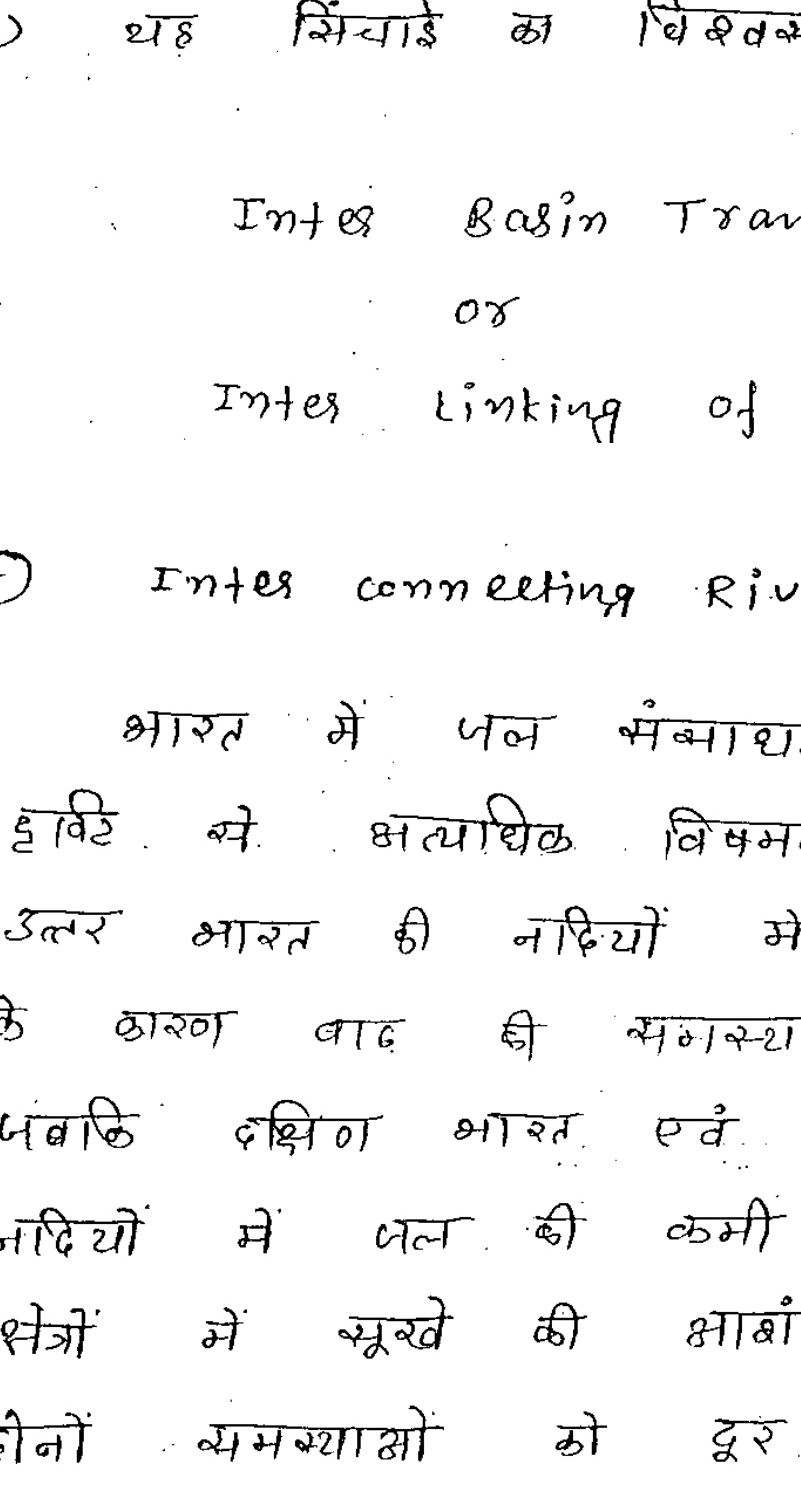 ) यह सिंचाई का विश्वस
Inter Basin Tran
or
Inter Linking of
Inter connecting Riv
भारत में जल संसाध
दृष्टि से अत्यधिक विषम
उत्तर भारत की नदियों में
के कारण बाढ़ की समस्या
जबकि दक्षिण भारत एवं
नदियों में जल की कमी
क्षेत्रों में सूखे की आशं
दोनों समस्याओं को दूर